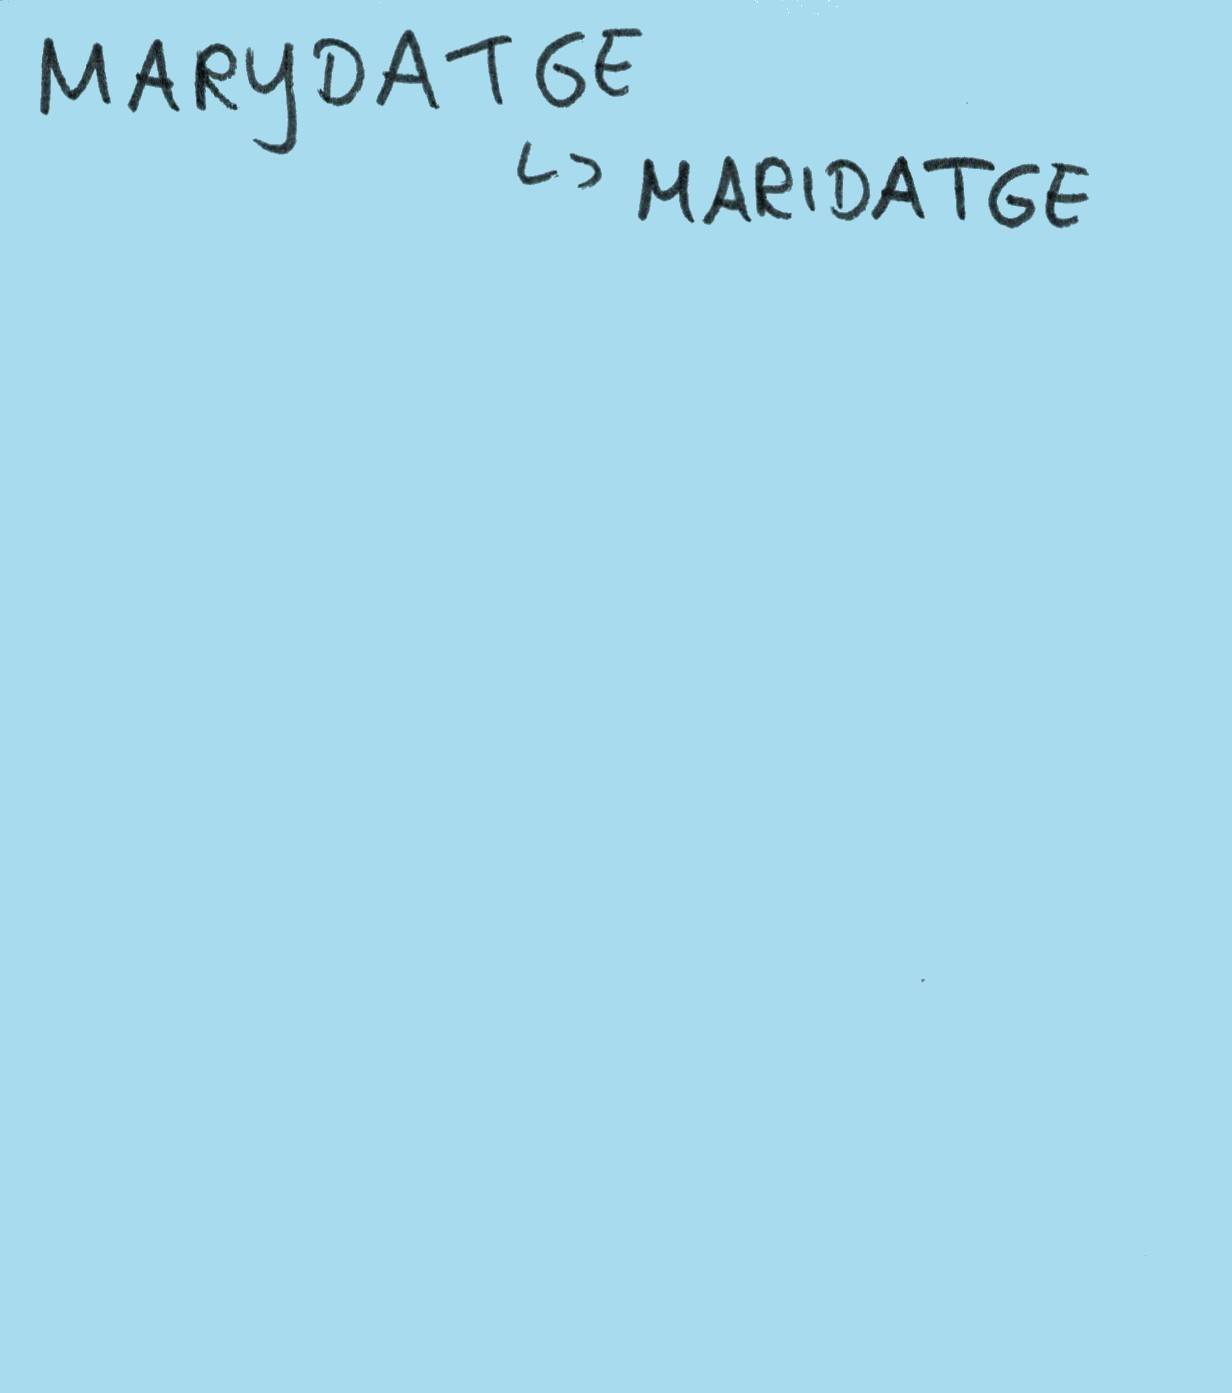 MARYDATGE
↳ MARIDATGE